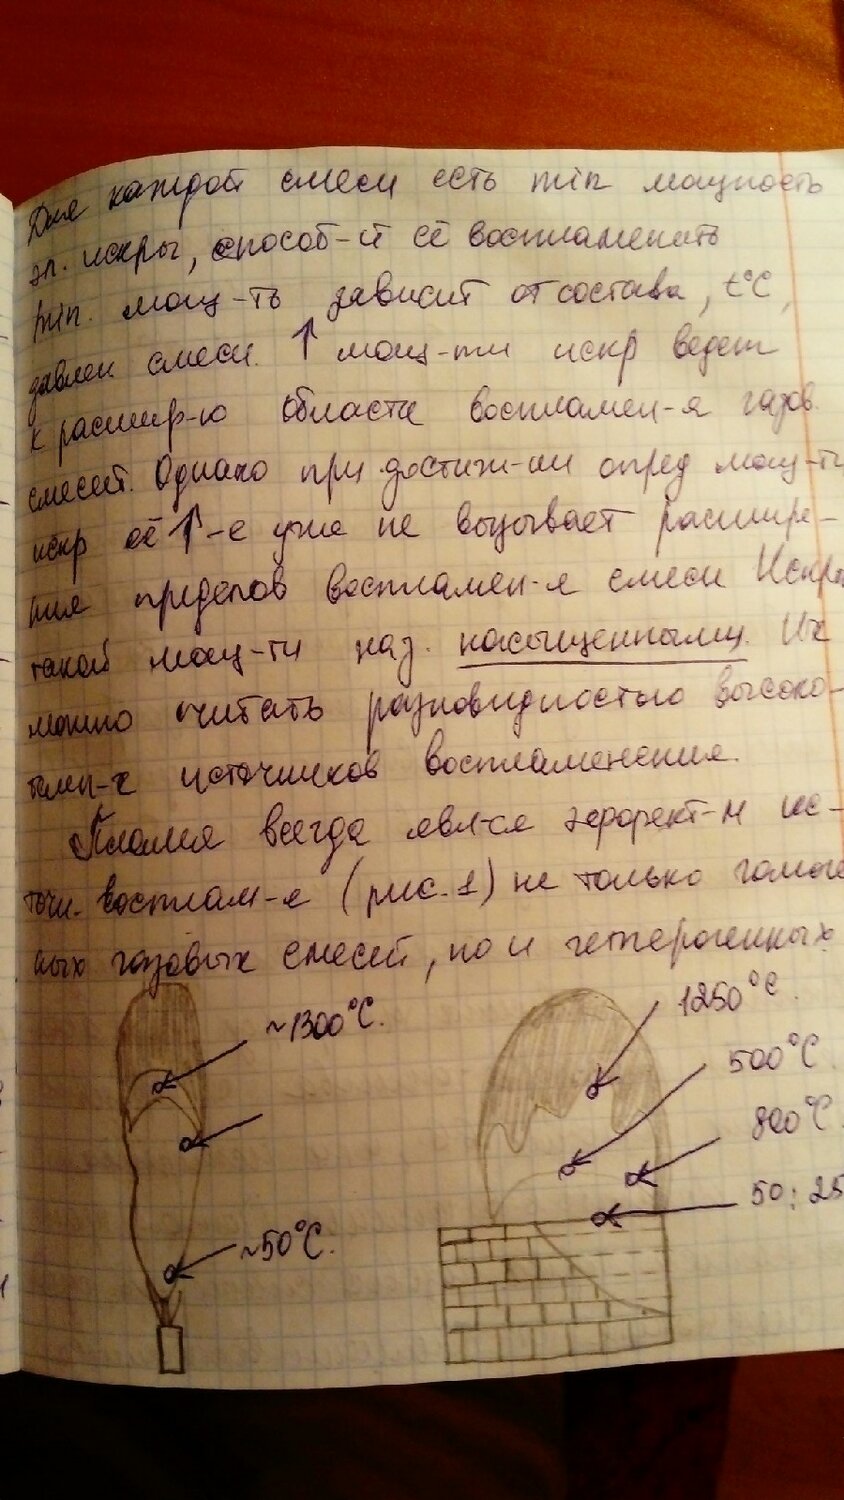 Для каждой смеси есть min мощность
эл. искры, способ-й её воспламенить
min. мощ-ть зависит от состава, t°C,
давлен смеси. ↑ мощ-ти искр ведет
к расшир-ю области воспламен-я газов.
смесей. Однако при достиж-ии опред мощ-ти
искр её ↑-е уже не вызывает расшире-
ния пределов воспламен-я смеси Искры
такой мощ-ти наз. насыщенными. Их
можно считать разновидностью высоко-
темп-х источников воспламенения.
Пламя всегда явл-ся эффект-м ис-
точн. воспламен-я (рис. 1) не только гомоге
ных газовых смесей, но и гетерогенных
~1300°C.
1250°C.
500°C
800°C.
~50°C.
50÷25